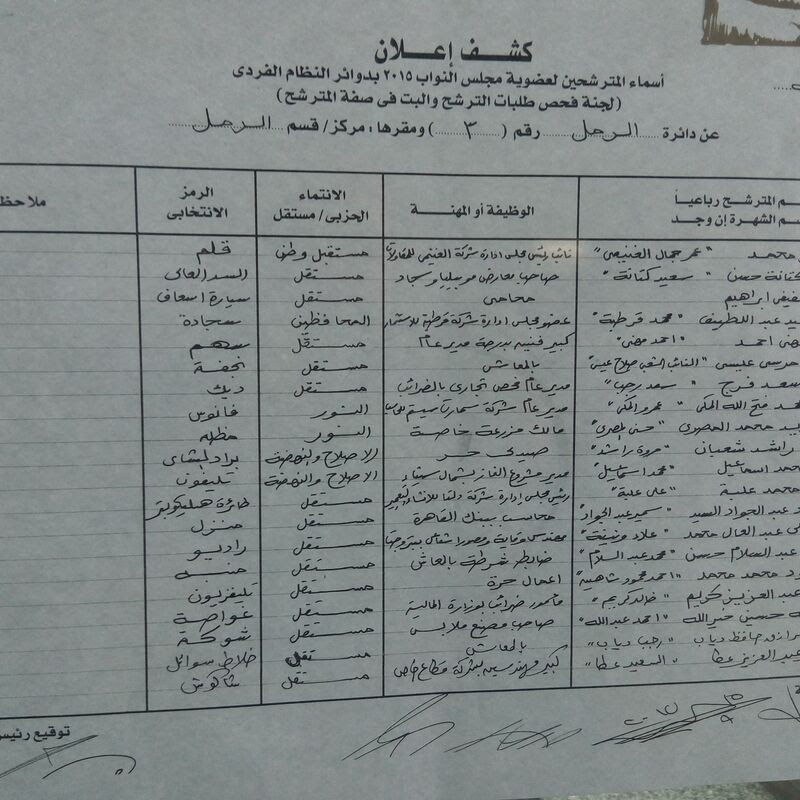 كشف إعلان
أسماء المترشحين لعضوية مجلس النواب ٢٠١٥ بدوائر النظام الفردى
(لجنة فحص طلبات الترشح والبت فى صفة المترشح)
عن دائرة الرمل رقم (٣) ومقرها : مركز/ قسم الرمل
م المترشح رباعياً
م الشهرة إن وجد
الوظيفة أو المهنة
الانتماء
الحزبى/مستقل
الرمز
الانتخابى
ملاحظ
محمد "عمر جمال الغنيمى" نائب رئيس مجلس ادارة شركة الغنيمى للمقاولات مستقبل وطن قلم
كتانة حسن "سعيد كتانة" صاحب معارض موبيليا وسجاد مستقل السد العالى
ابراهيم محامى مستقل سيارة اسعاف
يد عبد اللطيف "محمد قرطبة" عضو مجلس ادارة شركة قرطبة للاستثمار المحافظين سجادة
احمد كبير فنيين بدرجة مدير عام مستقل سهم
مرسى عيسى بالمعاش مستقل نجفة
سعد فرج "سعد رجب" مدير عام فحص تجارى بالضرائب مستقل ديك
مد فتح الله المكى "عمرو المكى" مدير عام شركة النور فانوس
محمد المصرى "حسنى المصرى" مالك مزرعة خاصة النور مظله
راشد شعبان "مروة راشد" صيدلى حر الاصلاح والنهضة براد الشاى
محمد اسماعيل "محمد اسماعيل" مدير مشروع الغاز بشمال سيناء الاصلاح والنهضة تليفون
محمد علبة "على علبة" رئيس مجلس ادارة شركة دلتا للانشاء والتعمير مستقل طائرة هليكوبتر
عبد الجواد السيد "سمير عبد الجواد" محاسب ببنك القاهرة مستقل منزل
ى عبد العال محمد مستقل راديو
عبد السلام حسن "محمد عبد السلام" ضابط شرطة بالمعاش مستقل
د محمد محمد "احمد محمود شاهين" اعمال حرة مستقل تليفزيون
عبد العزيز كريم "خالد كريم" مأمور ضرائب بوزارة المالية مستقل غواصة
حسن خير الله "احمد عبد الله" صاحب مصنع ملابس مستقل شوكة
حافظ دياب "رجب دياب" بالمعاش مستقل خلاط سوائل
عبد العزيز عطا "السعيد عطا" كبير مهندسين بشركة قطاع خاص مستقل شاكوش
توقيع رئيس